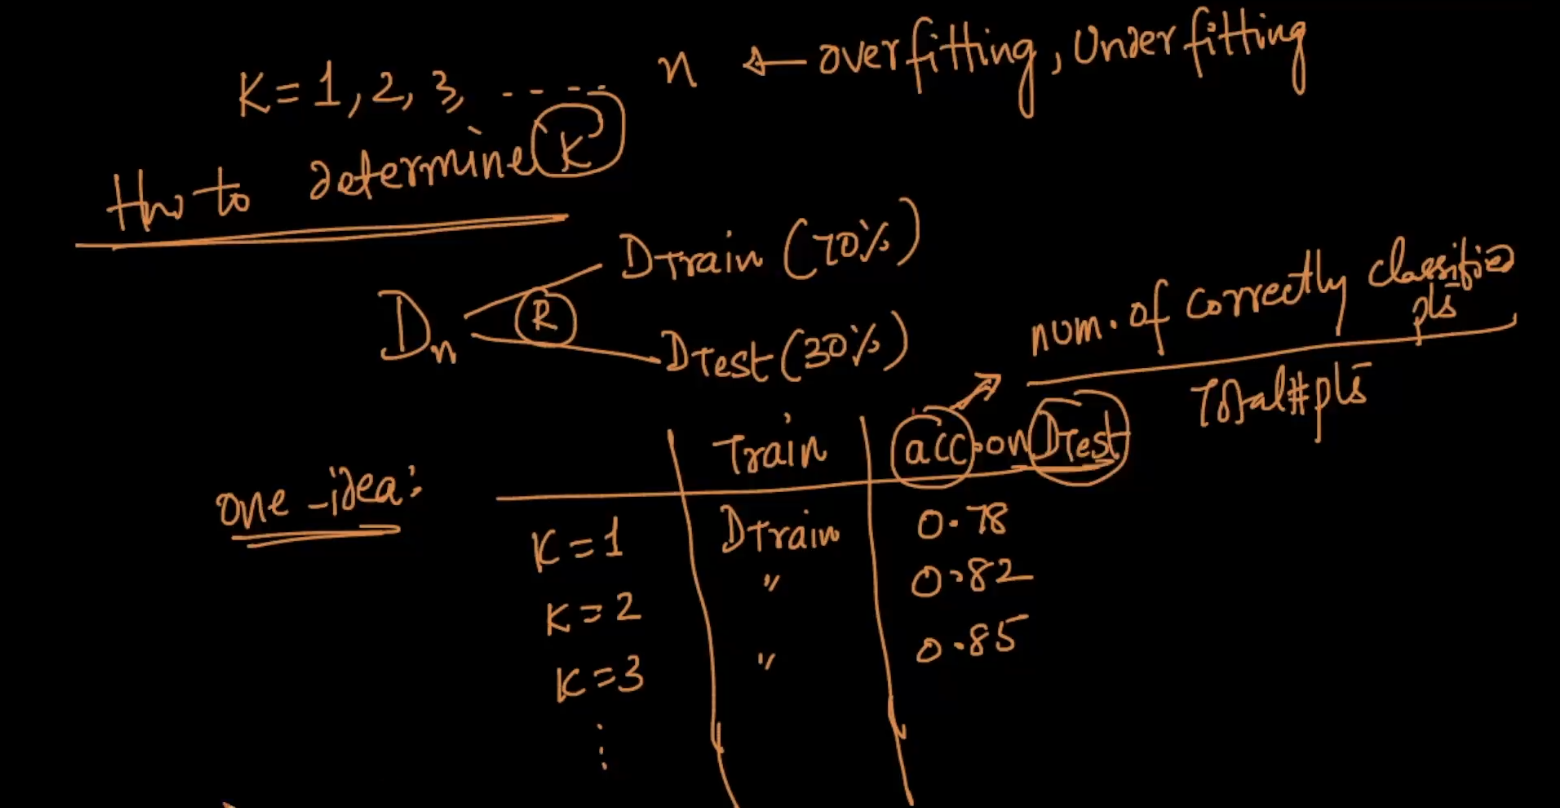 K=1, 2, 3, ----- n ← overfitting, Underfitting
How to determine K
Dn R DTrain (70%)
DTest (30%)
num. of correctly classified pts
Total # pts
Train acc. on DTest
one-idea:
K=1 DTrain 0.78
K=2 " 0.82
K=3 " 0.85
⋮